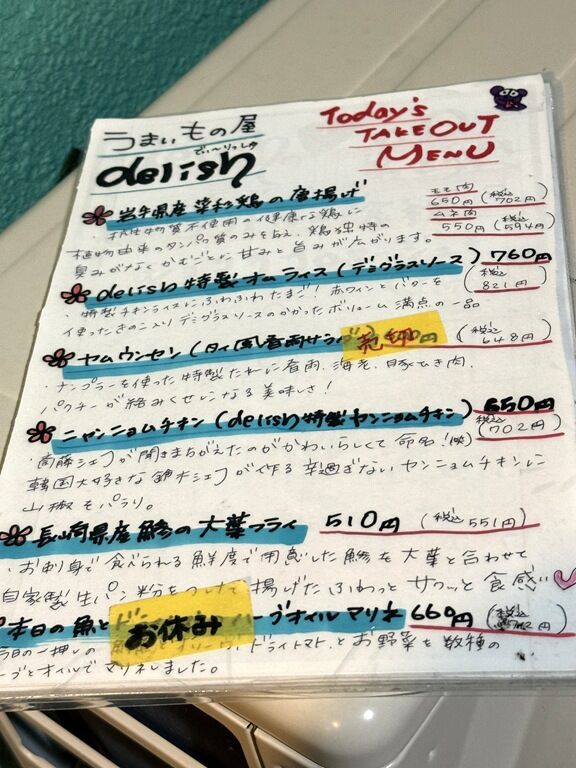 うまいもの屋
でぃ〜りっしゅ
delish
Today's
TAKEOUT
MENU
岩手県産菜彩鶏の唐揚げ
モモ肉
650円(税込702円)
ムネ肉
550円(税込594円)
抗生物質不使用の健康な鶏に
植物由来のタンパク質のみを与え、鶏独特の
臭みがなくかむごとに甘みと旨みが広がります。
delish特製オムライス(デミグラスソース) 760円
(税込821円)
・特製チキンライスにふわふわたまご!赤ワインとバターを
使ったきのこ入りデミグラスソースのかかったボリューム満点の一品
ヤムウンセン(タイ風春雨サラダ) 売切 円
(税込648円)
・ナンプラーを使った特製たれに春雨、海老、豚ひき肉、
パクチーが絡みくせになる美味しさ!
ニャンニョムチキン(delish特製ヤンニョムチキン) 650円
(税込702円)
・斎藤シェフが聞きまちがえたのがかわいらしくて命名!(笑)
韓国大好きな鈴木シェフが作る辛過ぎないヤンニョムチキンに
山椒をパラリ。
長崎県産鯵の大葉フライ 510円(税込551円)
・お刺身で食べられる鮮度で用意した鯵を大葉と合わせて
自家製生パン粉をつけて揚げたふわっとサクッと食感
本日の魚と お休み ーブオイルマリネ 660円(税込
今日の一押しの ドライトマト、とお野菜を数種の
ーブとオイルでマリネしました。